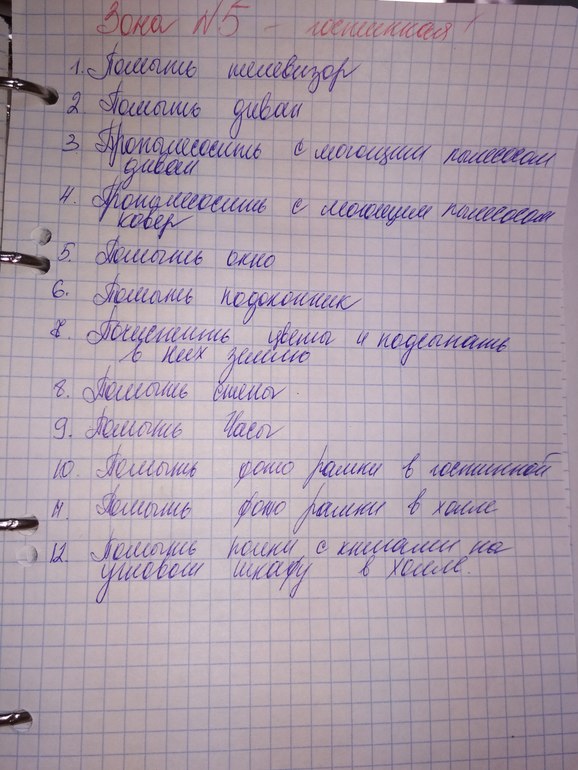 Зона №5 - гостинная!
1. Помыть телевизор
2. Помыть диван
3. Пропылесосить с моющим пылесосом
диван
4. Пропылесосить с моющим пылесосом
ковер
5. Помыть окно
6. Помыть подоконник
7. Почистить цветы и подсыпать
в них землю
8. Помыть стены
9. Помыть Часы
10. Помыть фото рамки в гостинной
11. Помыть фото рамки в холле
12. Помыть полки с книгами на
угловом шкафу в холле.